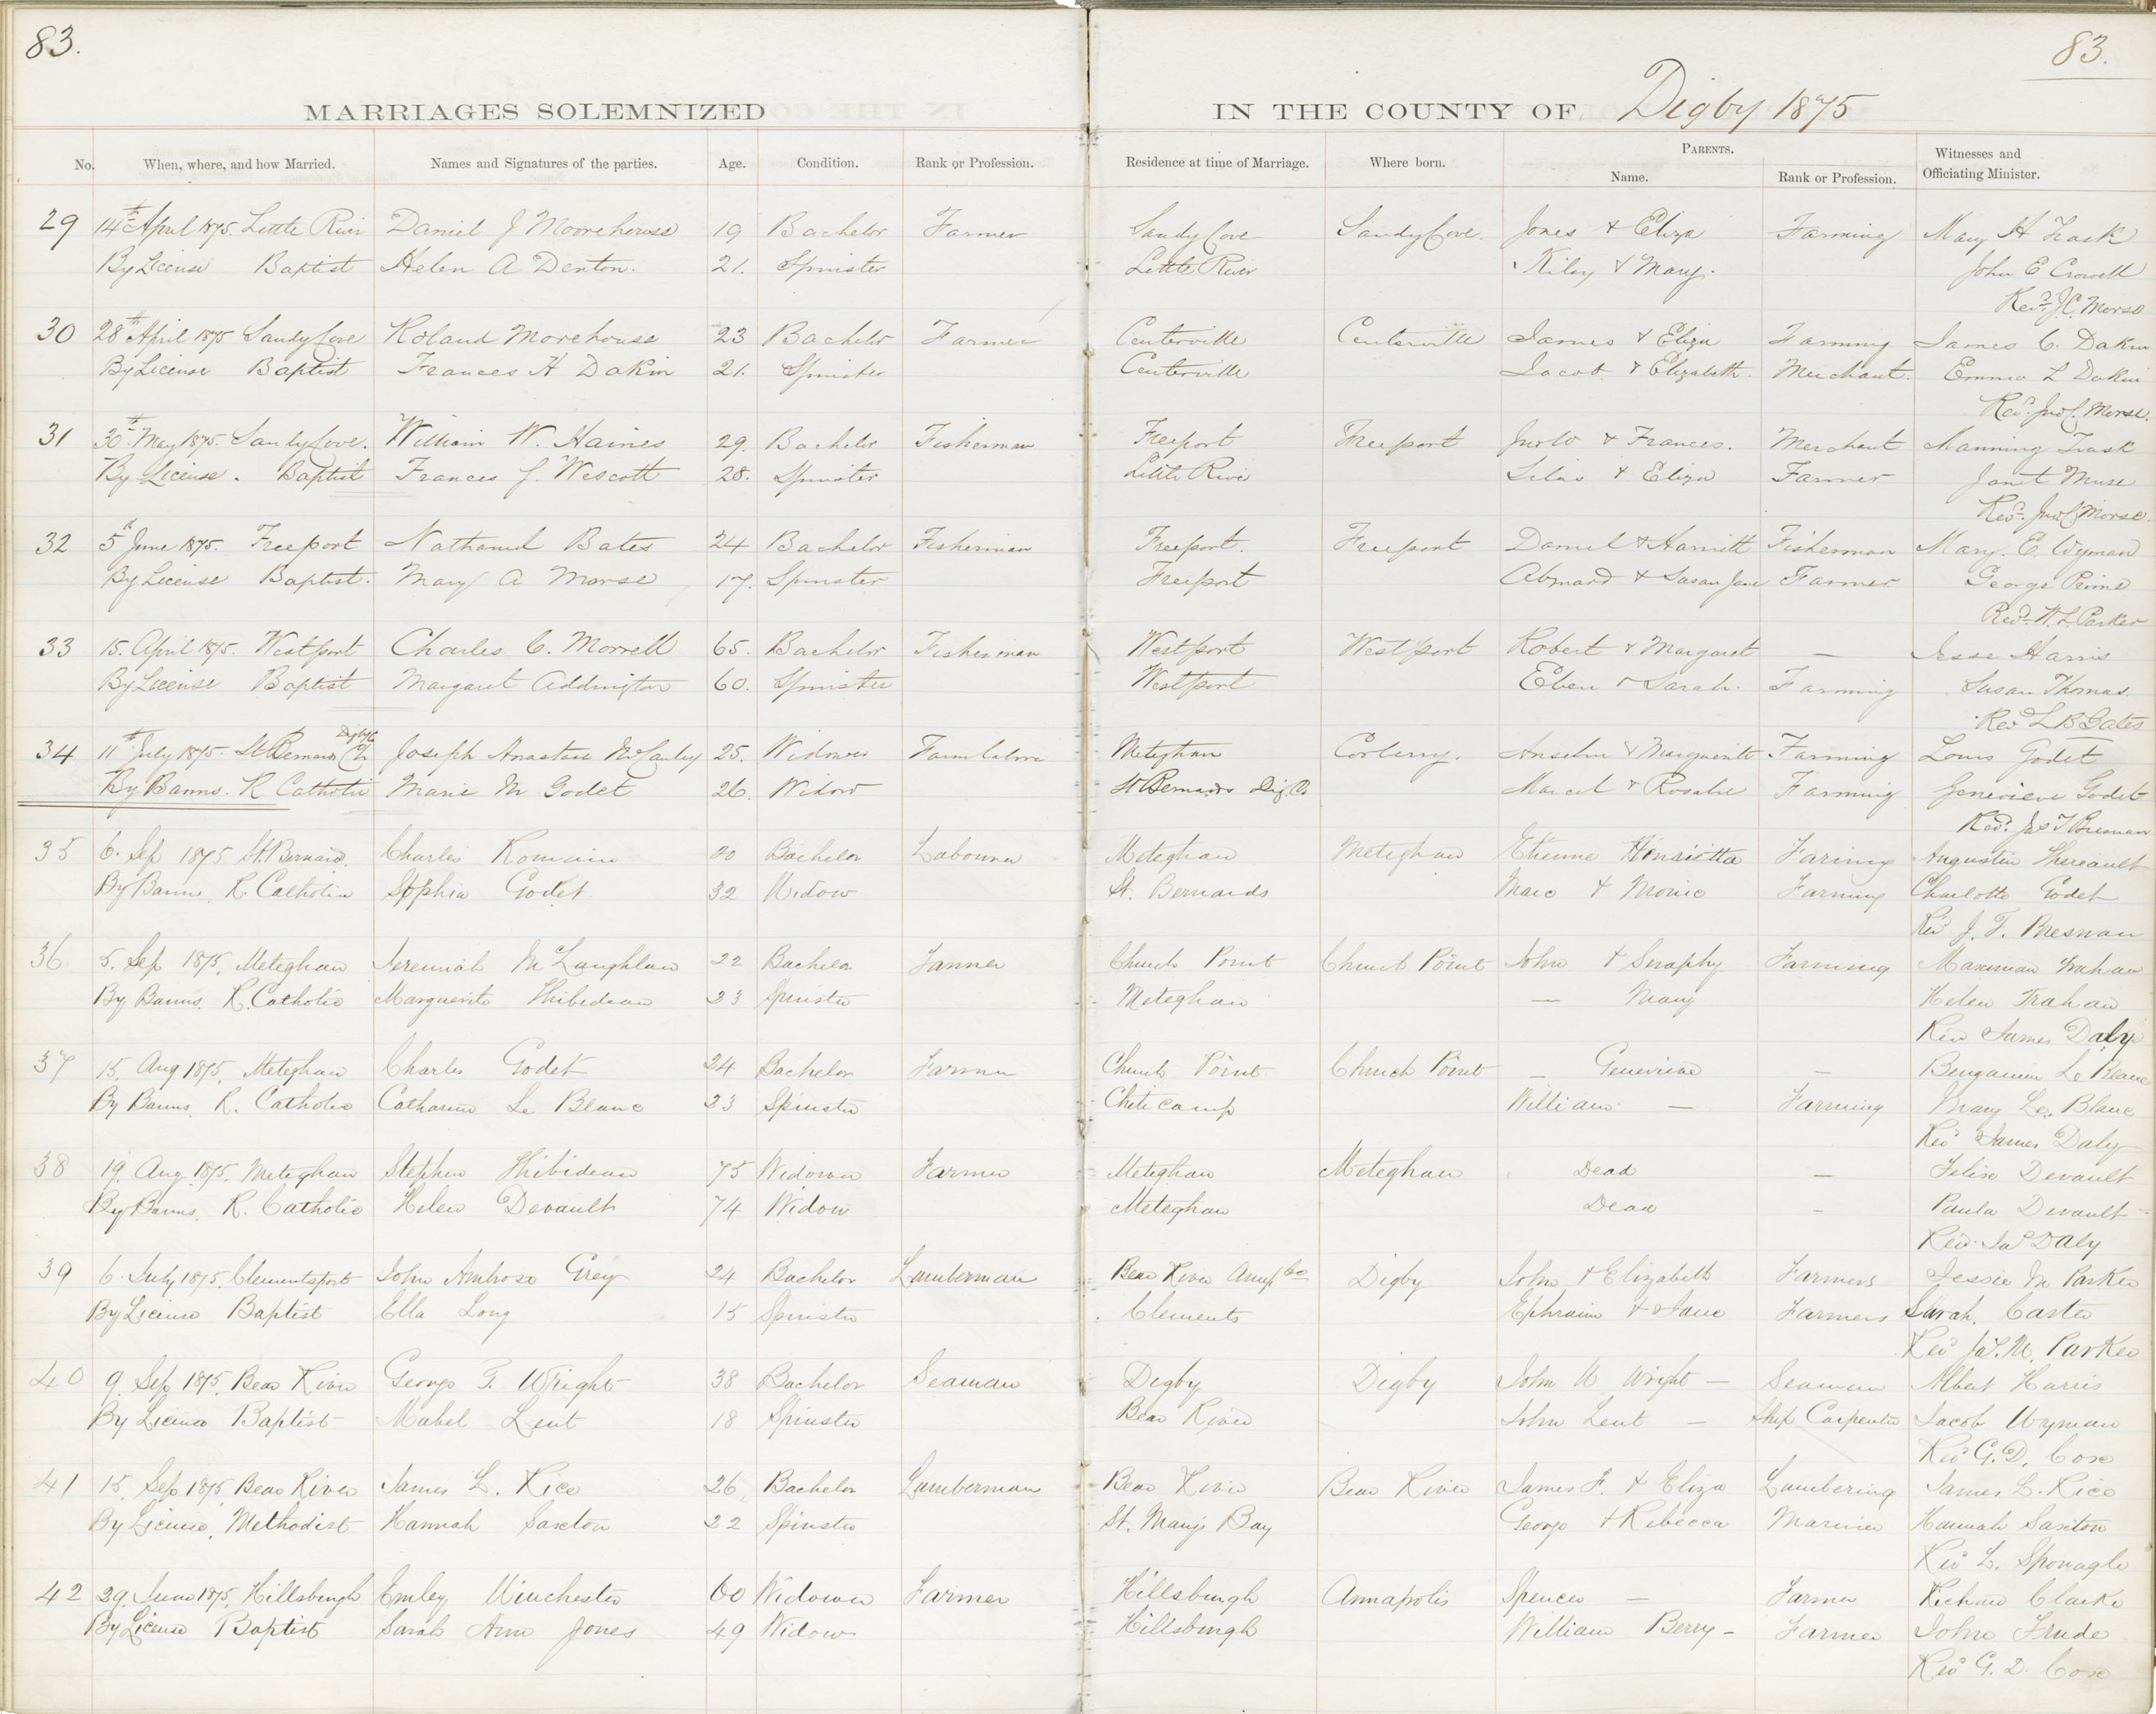 83.
83.
MARRIAGES SOLEMNIZED IN THE COUNTY OF Digby 1875
No. When, where, and how Married. Names and Signatures of the parties. Age. Condition. Rank or Profession. Residence at time of Marriage. Where born. PARENTS. Name. Rank or Profession. Witnesses and Officiating Minister.
29 14th April 1875. Little River Daniel J Moorehouse 19 Bachelor Farmer Sandy Cove Sandy Cove. Jones & Eliza Farming Mary H Trask
By License Baptist Helen A Denton. 21. Spinster Little River Kiley & Mary. John E Crowell
Revd J.C. Morse
30 28th April 1875 Sandy Cove Roland Morehouse 23 Bachelor Farmer Centerville Centerville James & Eliza Farming James C. Dakin
By License Baptist Frances H Dakin 21. Spinster Centerville Jacob & Elizabeth. Merchant. Emma L Dakin
Revd. Jno C. Morse.
31 30th May 1875. Sandy Cove. William W. Haines 29. Bachelor Fisherman Freeport Freeport & Frances. Merchant Manning Trask
By License. Baptist Frances J. Wescott 28. Spinster Little River Silas & Eliza Farmer Janet Muse
Revd. Jno C Morse
32 5th June 1875. Freeport Nathaniel Bates 24 Bachelor Fisherman Freeport. Freeport Daniel & Harriett Fisherman Mary. E. Wyman
By License Baptist. Mary A Morse 17. Spinster Freeport & Susan Jane Farmer George Prime
Revd. W. L Parker
33 15. April 1875. Westport Charles C. Morrell 65. Bachelor Fisherman Westport Westport Robert & Margaret — Jesse Harris
By License Baptist Margaret Addington 60. Spinster Westport Eben & Sarah. Farming Susan Thomas.
Revd L B Gates
Digby Co
34 11th July 1875. St Bernard Ch Joseph Anastase McCauley 25. Widower Farm Laborer Meteghan Corberry. Anselm & Marguerite Farming Louis Godet
By Banns. R Catholic Marie M Godet 26. Widow St Bernards Dig. Co Marcel & Rosalie Farming Genevieve Godet
Revd. Jas T Bresnan
35 6. Sep 1875 St. Bernard. Charles Romain 20 Bachelor Labourer Meteghan Meteghan Etienne Henrietta Faring Augustin Thereault
By Banns. R. Catholic Sophia Godet 32 Widow St. Bernards Marc & Monic Farming Charlotte Godet
Revd J. T. Bresnan
36 5. Sep 1875, Meteghan Jeremiah McLaughlan 22 Bachelor Farmer Church Point Church Point John & Seraphy Farming Trahan
By Banns. R. Catholic Marguerite Thibideau 23 Spinster Meteghan — Mary Helen Trahan
Rev James Daly
37 15. Aug 1875, Meteghan Charles Godet 24 Bachelor Farmer Church Point Church Point — Genevieve — Benjamin Le Blanc
By Banns. R. Catholic Catharine Le Blanc 23 Spinster Cheticamp William — Farming Mary Le. Blanc
Revd James Daly
38 19. Aug 1875. Meteghan Stephen Thibideau 75 Widower Farmer Meteghan Meteghan Dead — Felise Devault
By Banns. R. Catholic Helen Devault 74 Widow Meteghan Dead - Paula Devault
Revd. Jas Daly
39 6. July 1875. Clementsport John Ambrose Grey 24 Bachelor Lumberman Bear River Annp Co Digby John & Elizabeth Farmers Jessie M Parker
By License Baptist Ella Long 15 Spinster Clements Ephraim & Jane Farmers Sarah. Carter
Revd Jas. M. Parker
40 9. Sep 1875. Bear River George T. Wright 38 Bachelor Seaman Digby Digby John W Wright — Seaman Albert Harris
By License Baptist Mabel Lent 18 Spinster Bear River John Lent — Ship Carpenter Jacob Wyman
Revd G. D. Cox
41 15. Sep 1875, Bear River James L. Rice 26 Bachelor Lumberman Bear River Bear River James F. & Eliza Lumbering James L. Rice
By License. Methodist Hannah Saxton 22 Spinster St. Mary's Bay George & Rebecca Mariner Hannah Saxton
Revd L. Sponagle
42 29. June 1875. Hillsburgh Emley Winchester 60 Widower Farmer Hillsburgh Annapolis Spencer — Farmer Richard Clarke
By License Baptist Sarah Ann Jones 49 Widow Hillsburgh William Berry — Farmer John Frude
Revd G. D. Cox